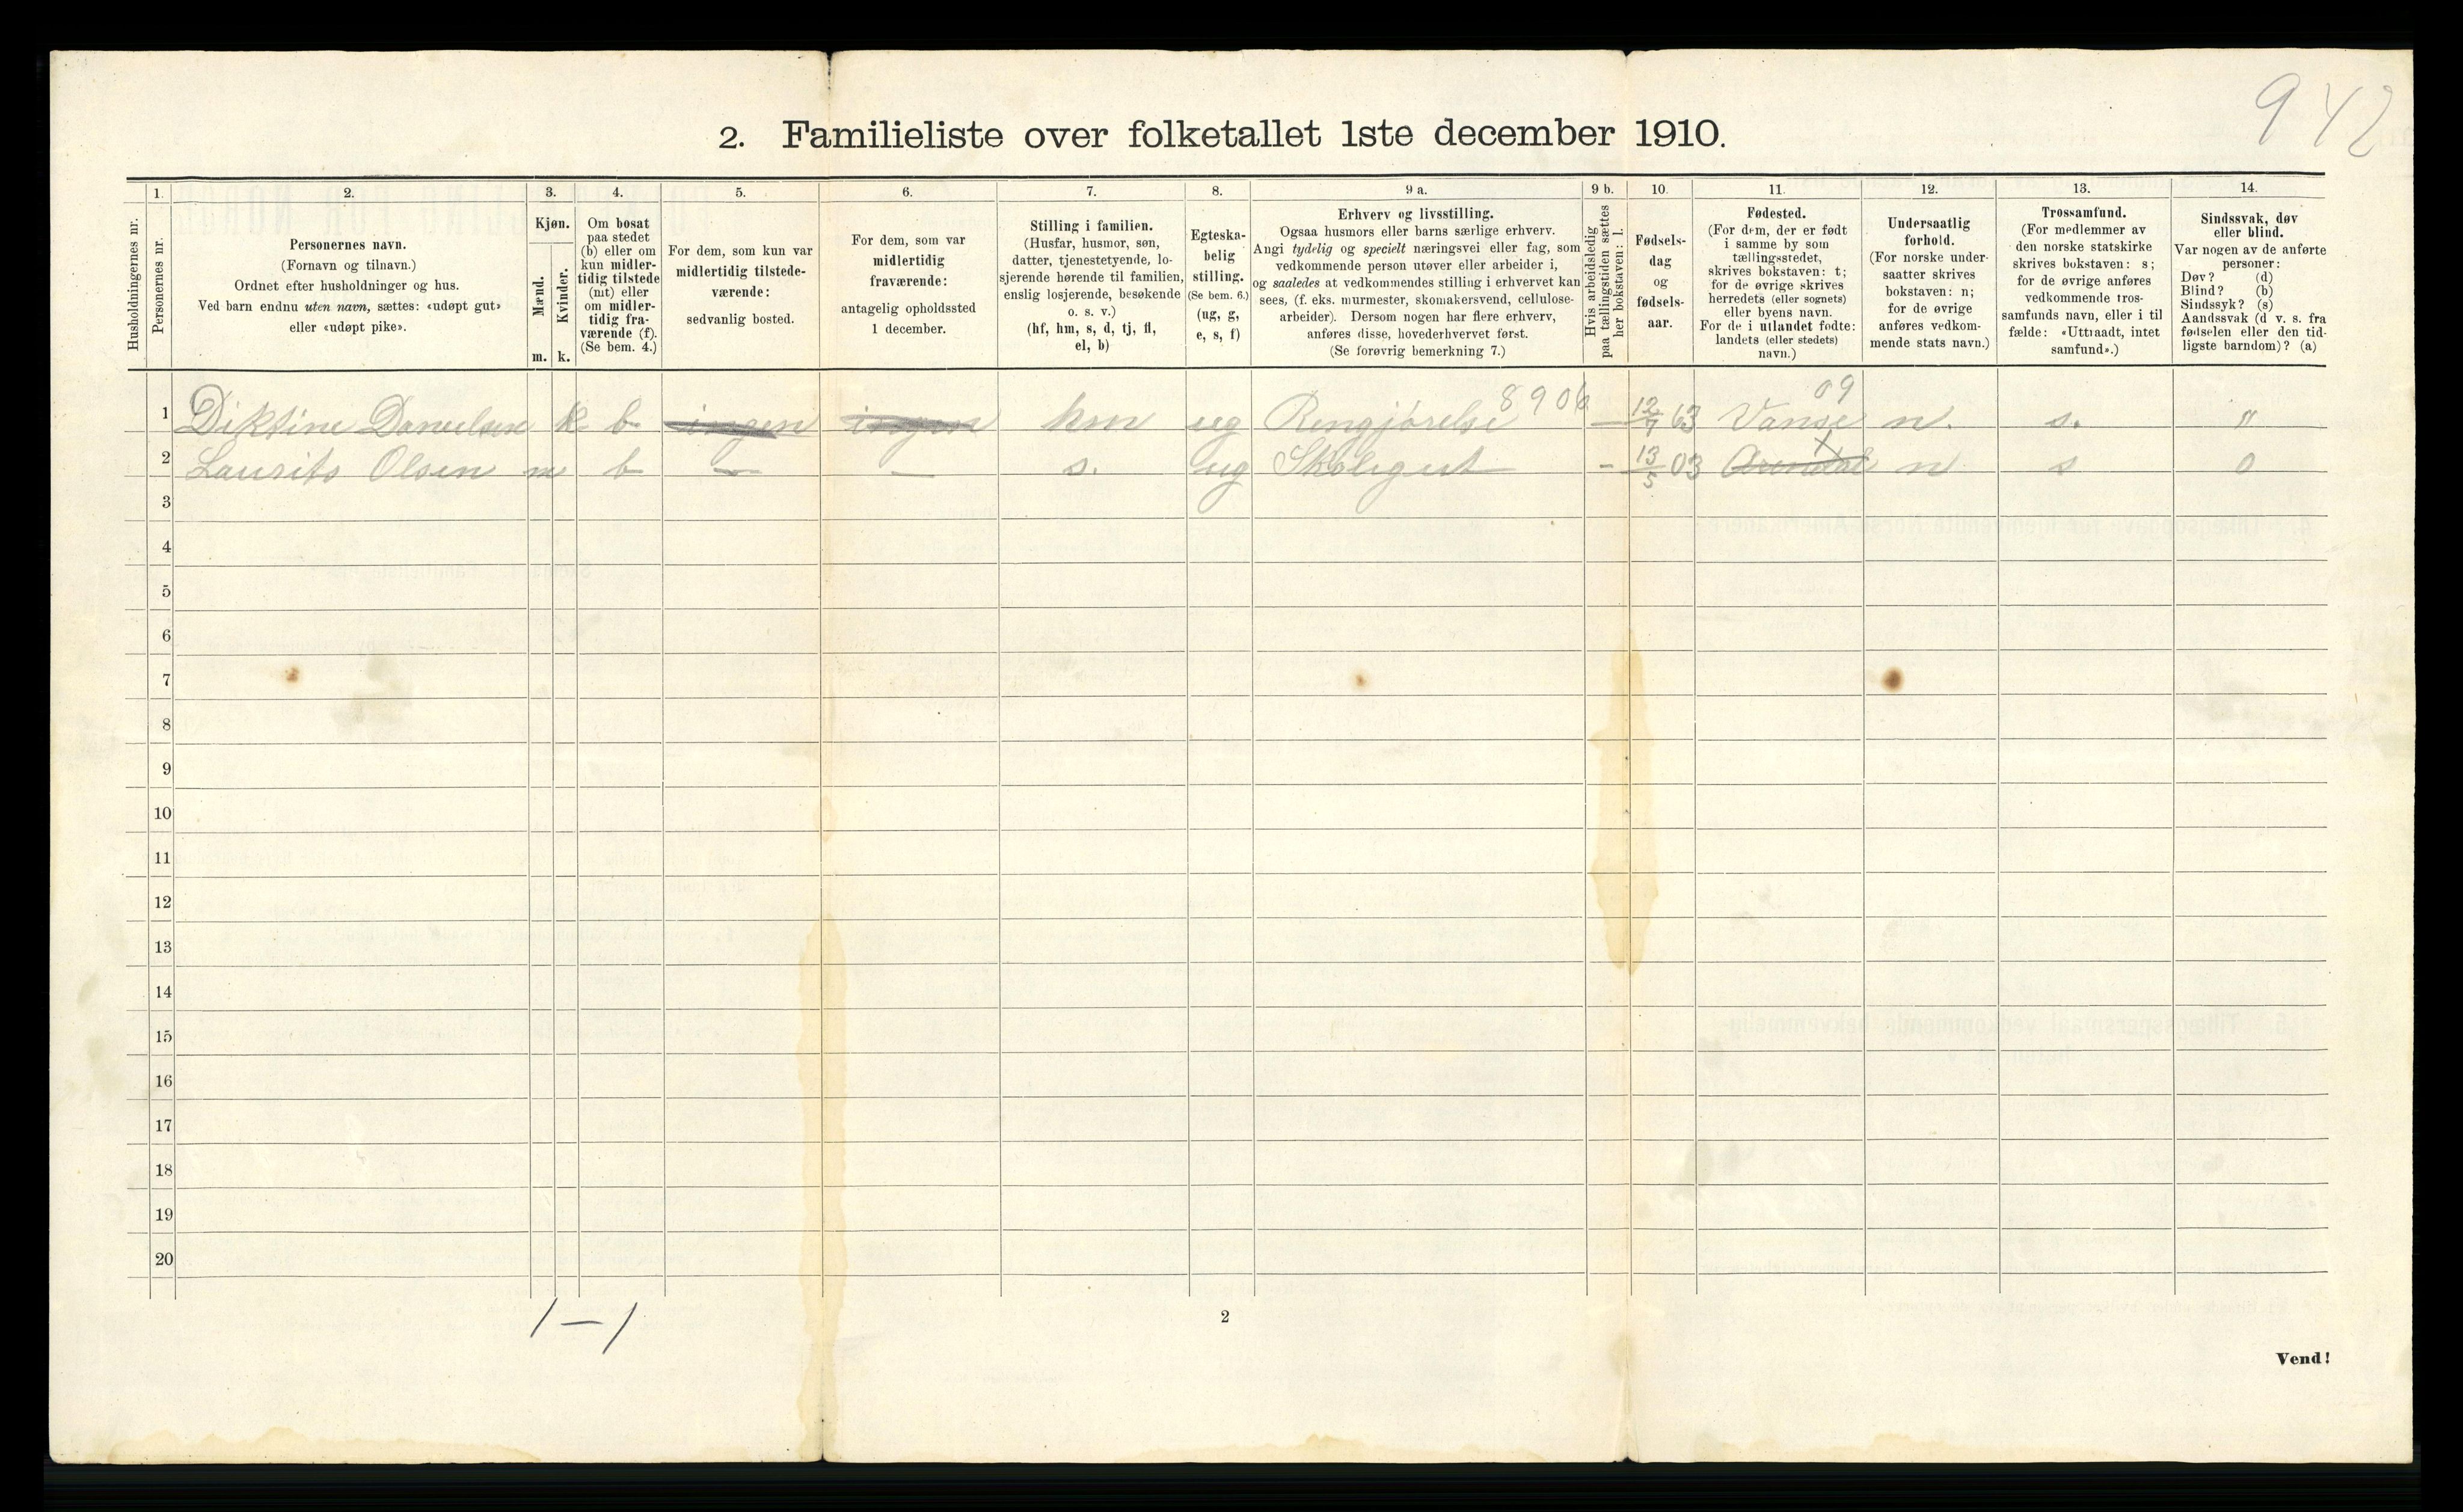 942
2. Familieliste over folketallet 1ste december 1910.
Husholdningernes nr.
1.
Personernes nr.
2.
Personernes navn.
(Fornavn og tilnavn.)
Ordnet efter husholdninger og hus.
Ved barn endnu uten navn, sættes: «udøpt gut»
eller «udøpt pike».
3.
Kjøn.
Mænd.
Kvinder.
m. k.
4.
Om bosat
paa stedet
(b) eller om
kun midler-
tidig tilstede
(mt) eller
om midler-
tidig fra-
værende (f).
(Se bem. 4.)
5.
For dem, som kun var
midlertidig tilstede-
værende:
sedvanlig bosted.
6.
For dem, som var
midlertidig
fraværende:
antagelig opholdssted
1 december.
7.
Stilling i familien.
(Husfar, husmor, søn,
datter, tjenestetyende, lo-
sjerende hørende til familien,
enslig losjerende, besøkende
o. s. v.)
(hf, hm, s, d, tj, fl,
el, b)
8.
Egteska-
belig
stilling.
(Se bem. 6.)
(ug, g,
e, s, f)
9 a.
Erhverv og livsstilling.
Ogsaa husmors eller barns særlige erhverv.
Angi tydelig og specielt næringsvei eller fag, som
vedkommende person utøver eller arbeider i,
og saaledes at vedkommendes stilling i erhvervet kan
sees, (f. eks. murmester, skomakersvend, cellulose-
arbeider). Dersom nogen har flere erhverv,
anføres disse, hovederhvervet først.
(Se forøvrig bemerkning 7.)
9 b.
Hvis arbeidsledig
paa tællingstiden sættes
her bokstaven: l.
10.
Fødsels-
dag
og
fødsels-
aar.
11.
Fødested.
(For dem, der er født
i samme by som
tællingsstedet,
skrives bokstaven: t;
for de øvrige skrives
herredets (eller sognets)
eller byens navn.
For de i utlandet fødte:
landets (eller stedets)
navn.)
12.
Undersaatlig
forhold.
(For norske under-
saatter skrives
bokstaven: n;
for de øvrige
anføres vedkom-
mende stats navn.)
13.
Trossamfund.
(For medlemmer av
den norske statskirke
skrives bokstaven: s;
for de øvrige anføres
vedkommende tros-
samfunds navn, eller i til
fælde: «Uttraadt, intet
samfund».)
14.
Sindssvak, døv
eller blind.
Var nogen av de anførte
personer:
Døv? (d)
Blind? (b)
Sindssyk? (s)
Aandssvak (d v. s. fra
fødselen eller den tid-
ligste barndom)? (a)
8906 09
1 Diktine Danielsen k b ingen ingen hm ug Rengjørelse - 12/7 63 Vanse n. s. "
2 Laurits Olsen m b — — s. ug Skolegut - 13/5 03 Arendal n s 0
3
4
5
6
7
8
9
10
11
12
13
14
15
16
17
18
19
20
1 — 1
2
Vend!